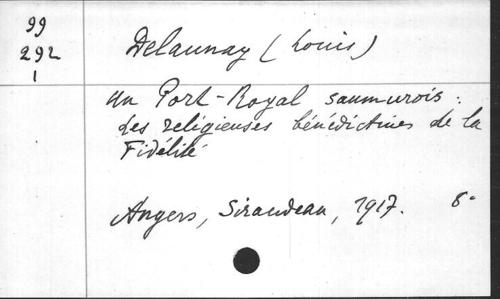 99
292
1
Delaunay (Louis)
Un Port-Royal saumurois :
les religieuses bénédictines de la
Fidélité
Angers, Siraudeau, 1917. 8°